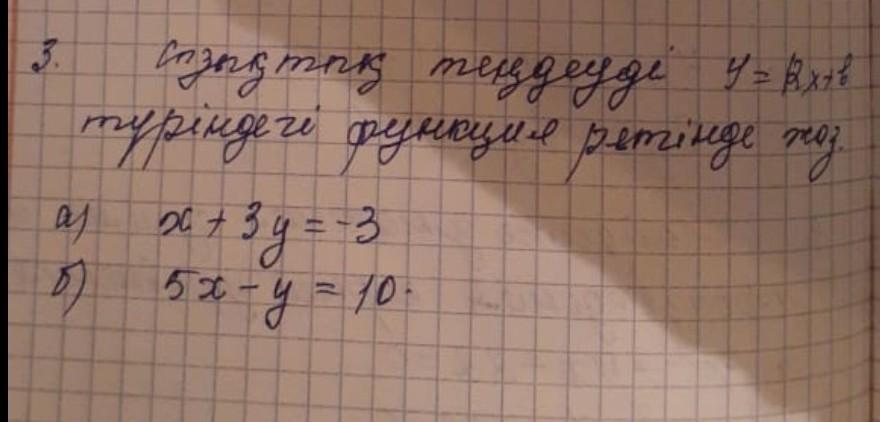 3. Сызықтық теңдеуді y = kx+b
түріндегі функция ретінде жаз.
а) x + 3y = -3
б) 5x - y = 10.